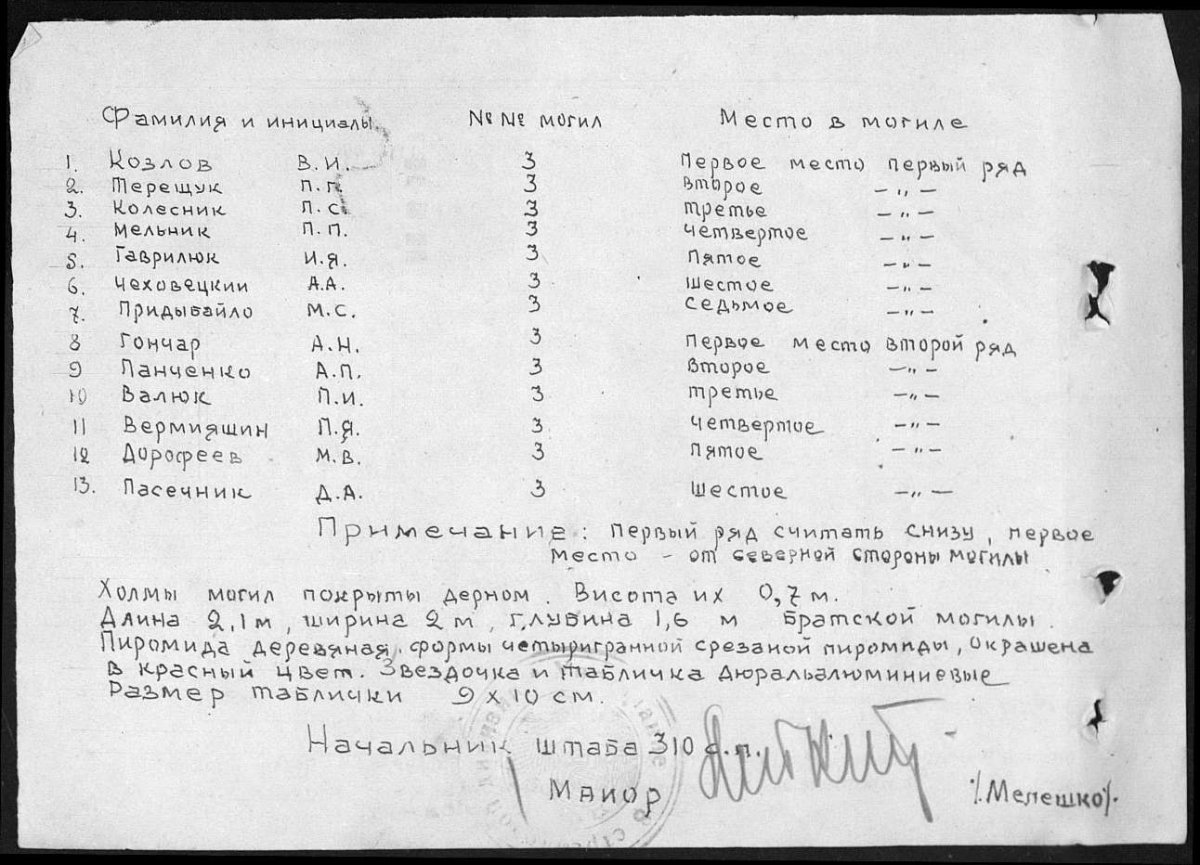 Фамилия и инициалы №№ могил Место в могиле
1. Козлов В.И. 3 Первое место первый ряд
2. Терещук П.П. 3 второе — „ —
3. Колесник П.С. 3 третье — „ —
4. Мельник П.П. 3 четвертое — „ —
5. Гаврилюк И.Я. 3 пятое — „ —
6. Чеховецкии А.А. 3 шестое — „ —
7. Придыбайло М.С. 3 седьмое — „ —
8 Гончар А.Н. 3 первое место второй ряд
9 Панченко А.П. 3 второе — „ —
10 Валюк П.И. 3 третье — „ —
11 Вермияшин П.Я. 3 четвертое — „ —
12 Дорофеев М.В. 3 пятое — „ —
13. Пасечник Д.А. 3 шестое — „ —
Примечание: первый ряд считать снизу, первое
место – от северной стороны могилы
Холмы могил покрыты дерном. Висота их 0,7 м.
Длина 2,1м, ширина 2 м, глубина 1,6 м братской могилы.
Пиромида деревяная формы четыригранной срезаной пиромиды, окрашена
в красный цвет. Звездочка и табличка дюральалюминиевые
Размер таблички 9 х 10 см.
Начальник штаба 310 с.п.
Маиор /Мелешко/.